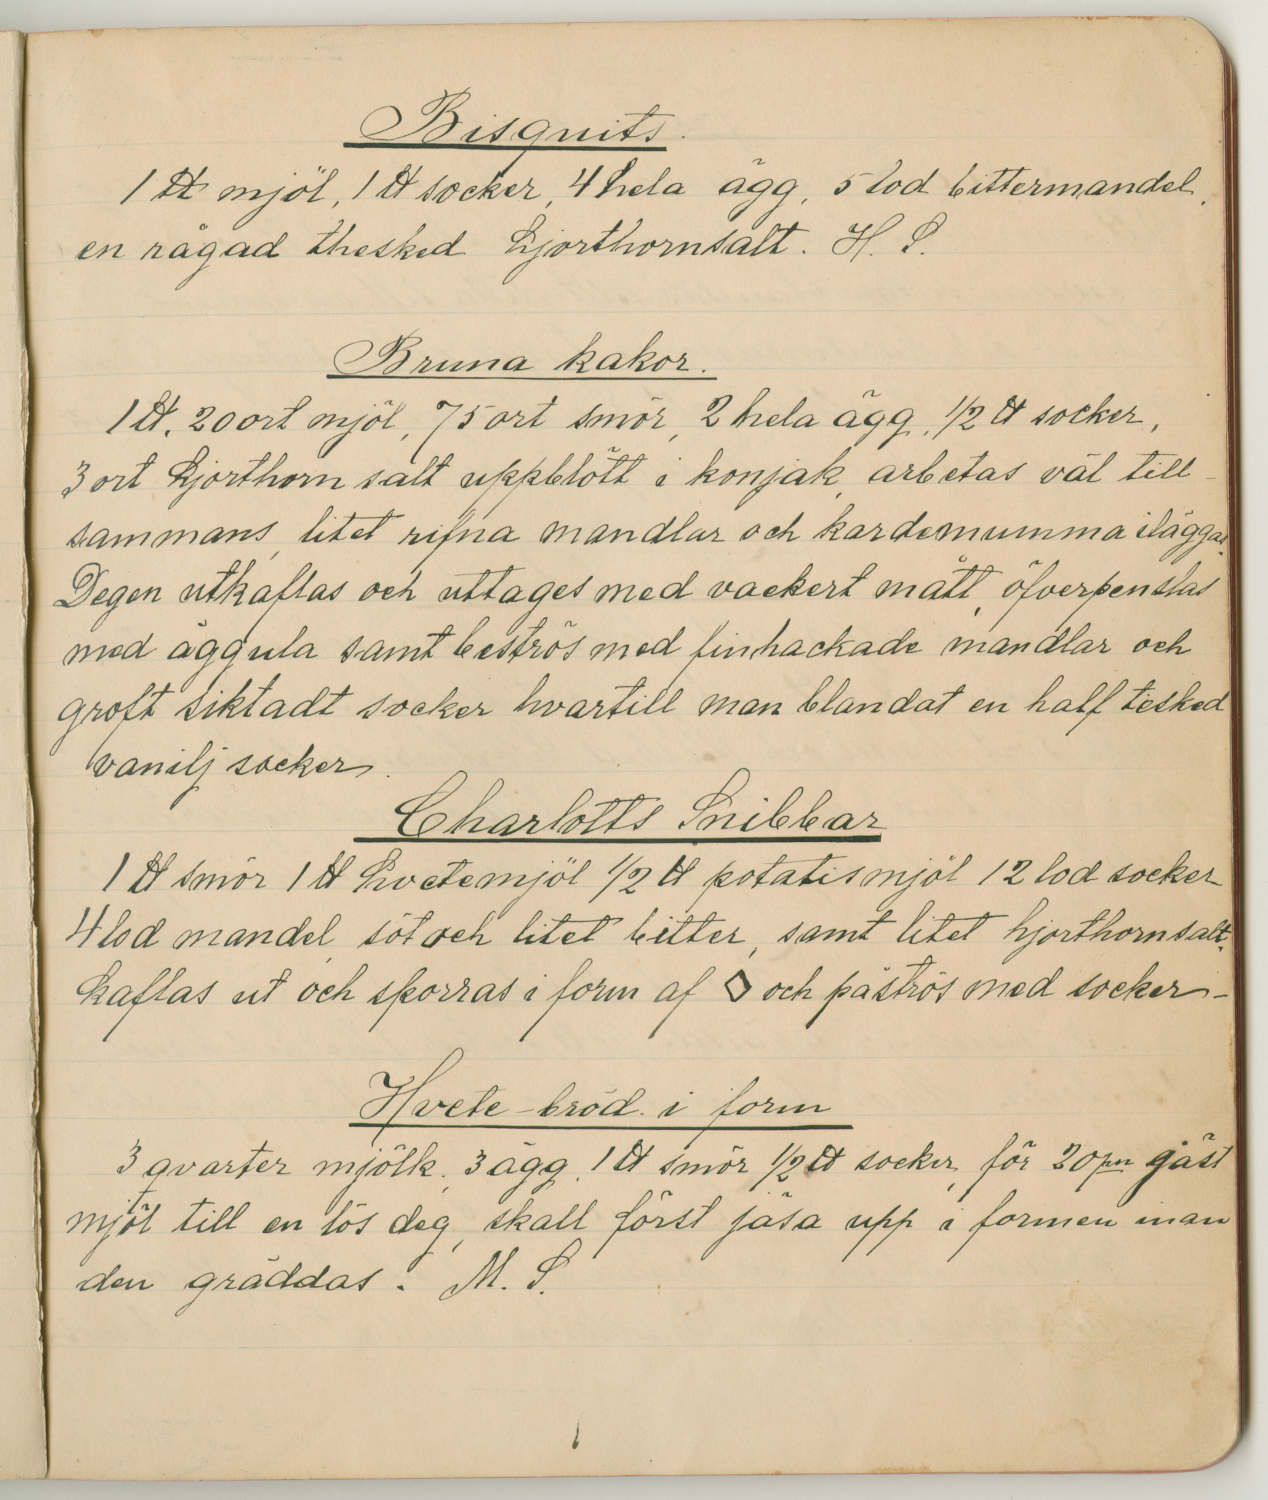 Bisquits.
1 ℔ mjöl, 1 ℔ socker, 4 hela ägg, 5 lod bittermandel,
en rågad thesked hjorthornsalt. H. S.
Bruna kakor.
1 ℔. 20 ort mjöl, 75 ort smör, 2 hela ägg, 1/2 ℔ socker,
3 ort hjorthorn salt uppblött i konjak, arbetas väl till-
sammans, litet rifna mandlar och kardemumma ilägges.
Degen utkaflas och uttages med vackert mått, öfverpenslas
med äggula samt beströs med finhackade mandlar och
groft siktadt socker hvartill man blandat en half tesked
vanilj socker.
Charlotts Snibbar
1 ℔ smör 1 ℔ hvetemjöl 1/2 ℔ potatismjöl 12 lod socker
4 lod mandel, söt och litet bitter, samt litet hjorthornsalt.
kaflas ut och sporras i form af ◊ och påströs med socker-
Hvete-bröd i form
3 qvarter mjölk, 3 ägg, 1 ℔ smör 1/2 ℔ socker, för 20 jäst
mjöl till en lös deg, skall först jäsa upp i formen inan
den gräddas. M. S.